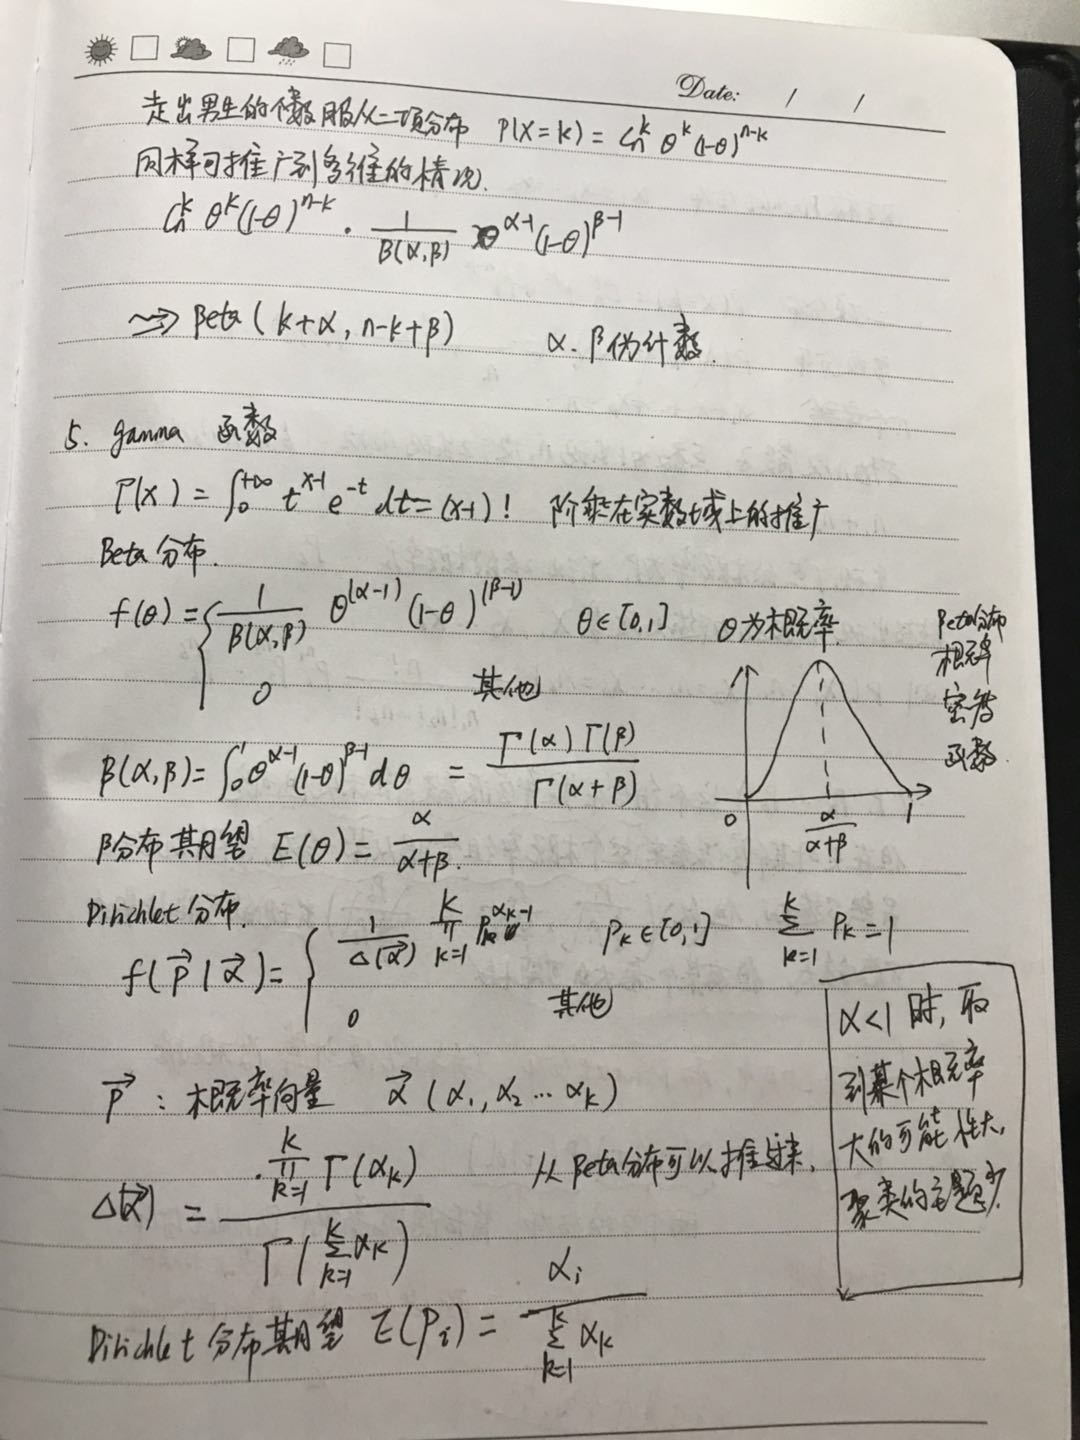 Date: / /
走出男生的个数服从二项分布 P(X=k) = Cₙᵏ θᵏ (1-θ)ⁿ⁻ᵏ
同样可推广到多维的情况.
Cₙᵏ θᵏ (1-θ)ⁿ⁻ᵏ · 1/B(α,β) θ^(α-1) (1-θ)^(β-1)
⇝ Beta ( k+α, n-k+β) α. β伪计数.
5. gamma 函数
Γ(x) = ∫₀^(+∞) t^(x-1) e^(-t) dt = (x-1)! 阶乘在实数域上的推广
Beta 分布.
f(θ) = { 1/B(α,β) θ^(α-1) (1-θ)^(β-1) θ∈[0,1] θ为概率.
0 其他
Beta分布
概率
密度
函数.
B(α,β) = ∫₀¹ θ^(α-1) (1-θ)^(β-1) dθ = Γ(α)Γ(β) / Γ(α+β)
0 α/(α+β) 1
β分布期望 E(θ) = α/(α+β).
Dirichlet 分布.
f(p⃗ | α⃗) = { 1/Δ(α⃗) ∏_(k=1)^K p_k^(α_k-1) p_k∈[0,1] ∑_(k=1)^K p_k = 1
0 其他
p⃗ : 概率向量 α⃗ (α₁, α₂ ... α_k)
Δ(α⃗) = ∏_(k=1)^K Γ(α_k) / Γ(∑_(k=1)^K α_k) 从Beta分布可以推过来.
α<1 时, 取
到某个概率
大的可能性大,
聚类的主题少.
Dirichlet 分布期望 E(p_i) = α_i / ∑_(k=1)^K α_k